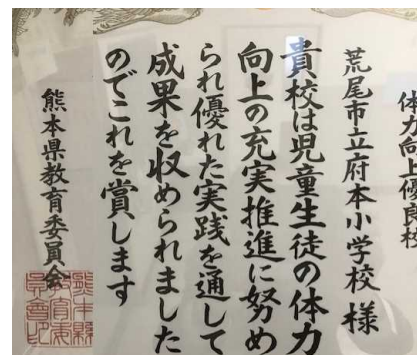 体力向上優良校
荒尾市立府本小学校 様
貴校は児童生徒の体力
向上の充実推進に努め
られ優れた実践を通して
成果を収められました
のでこれを賞します
熊本県教育委員会